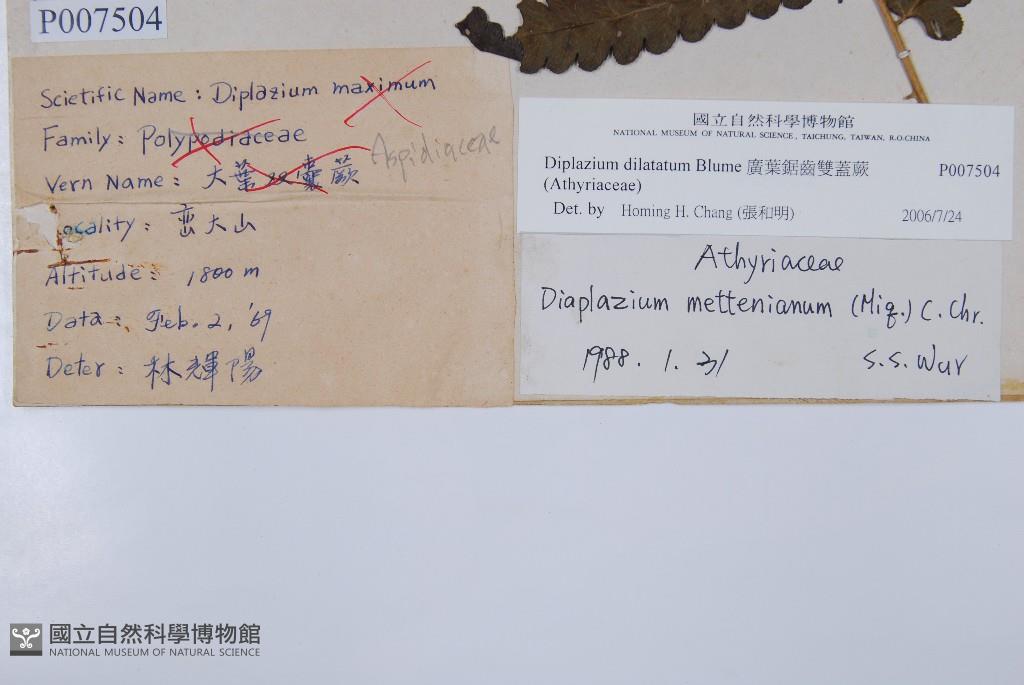 P007504
Scietific Name : Diplazium maximum
Family : Polypodiaceae
Aspidiaceae
Vern Name : 大葉双囊蕨
Locality : 峦大山
Altitude : 1800 m
Data : Feb. 2, '69
Deter : 林輝陽
國立自然科學博物館
NATIONAL MUSEUM OF NATURAL SCIENCE, TAICHUNG, TAIWAN, R.O.CHINA
Diplazium dilatatum Blume 廣葉鋸齒雙蓋蕨 P007504
(Athyriaceae)
Det. by Homing H. Chang (張和明) 2006/7/24
Athyriaceae
Diaplazium mettenianum (Miq.) C. Chr.
1988. 1. 31 S.S. Wur
國立自然科學博物館
NATIONAL MUSEUM OF NATURAL SCIENCE